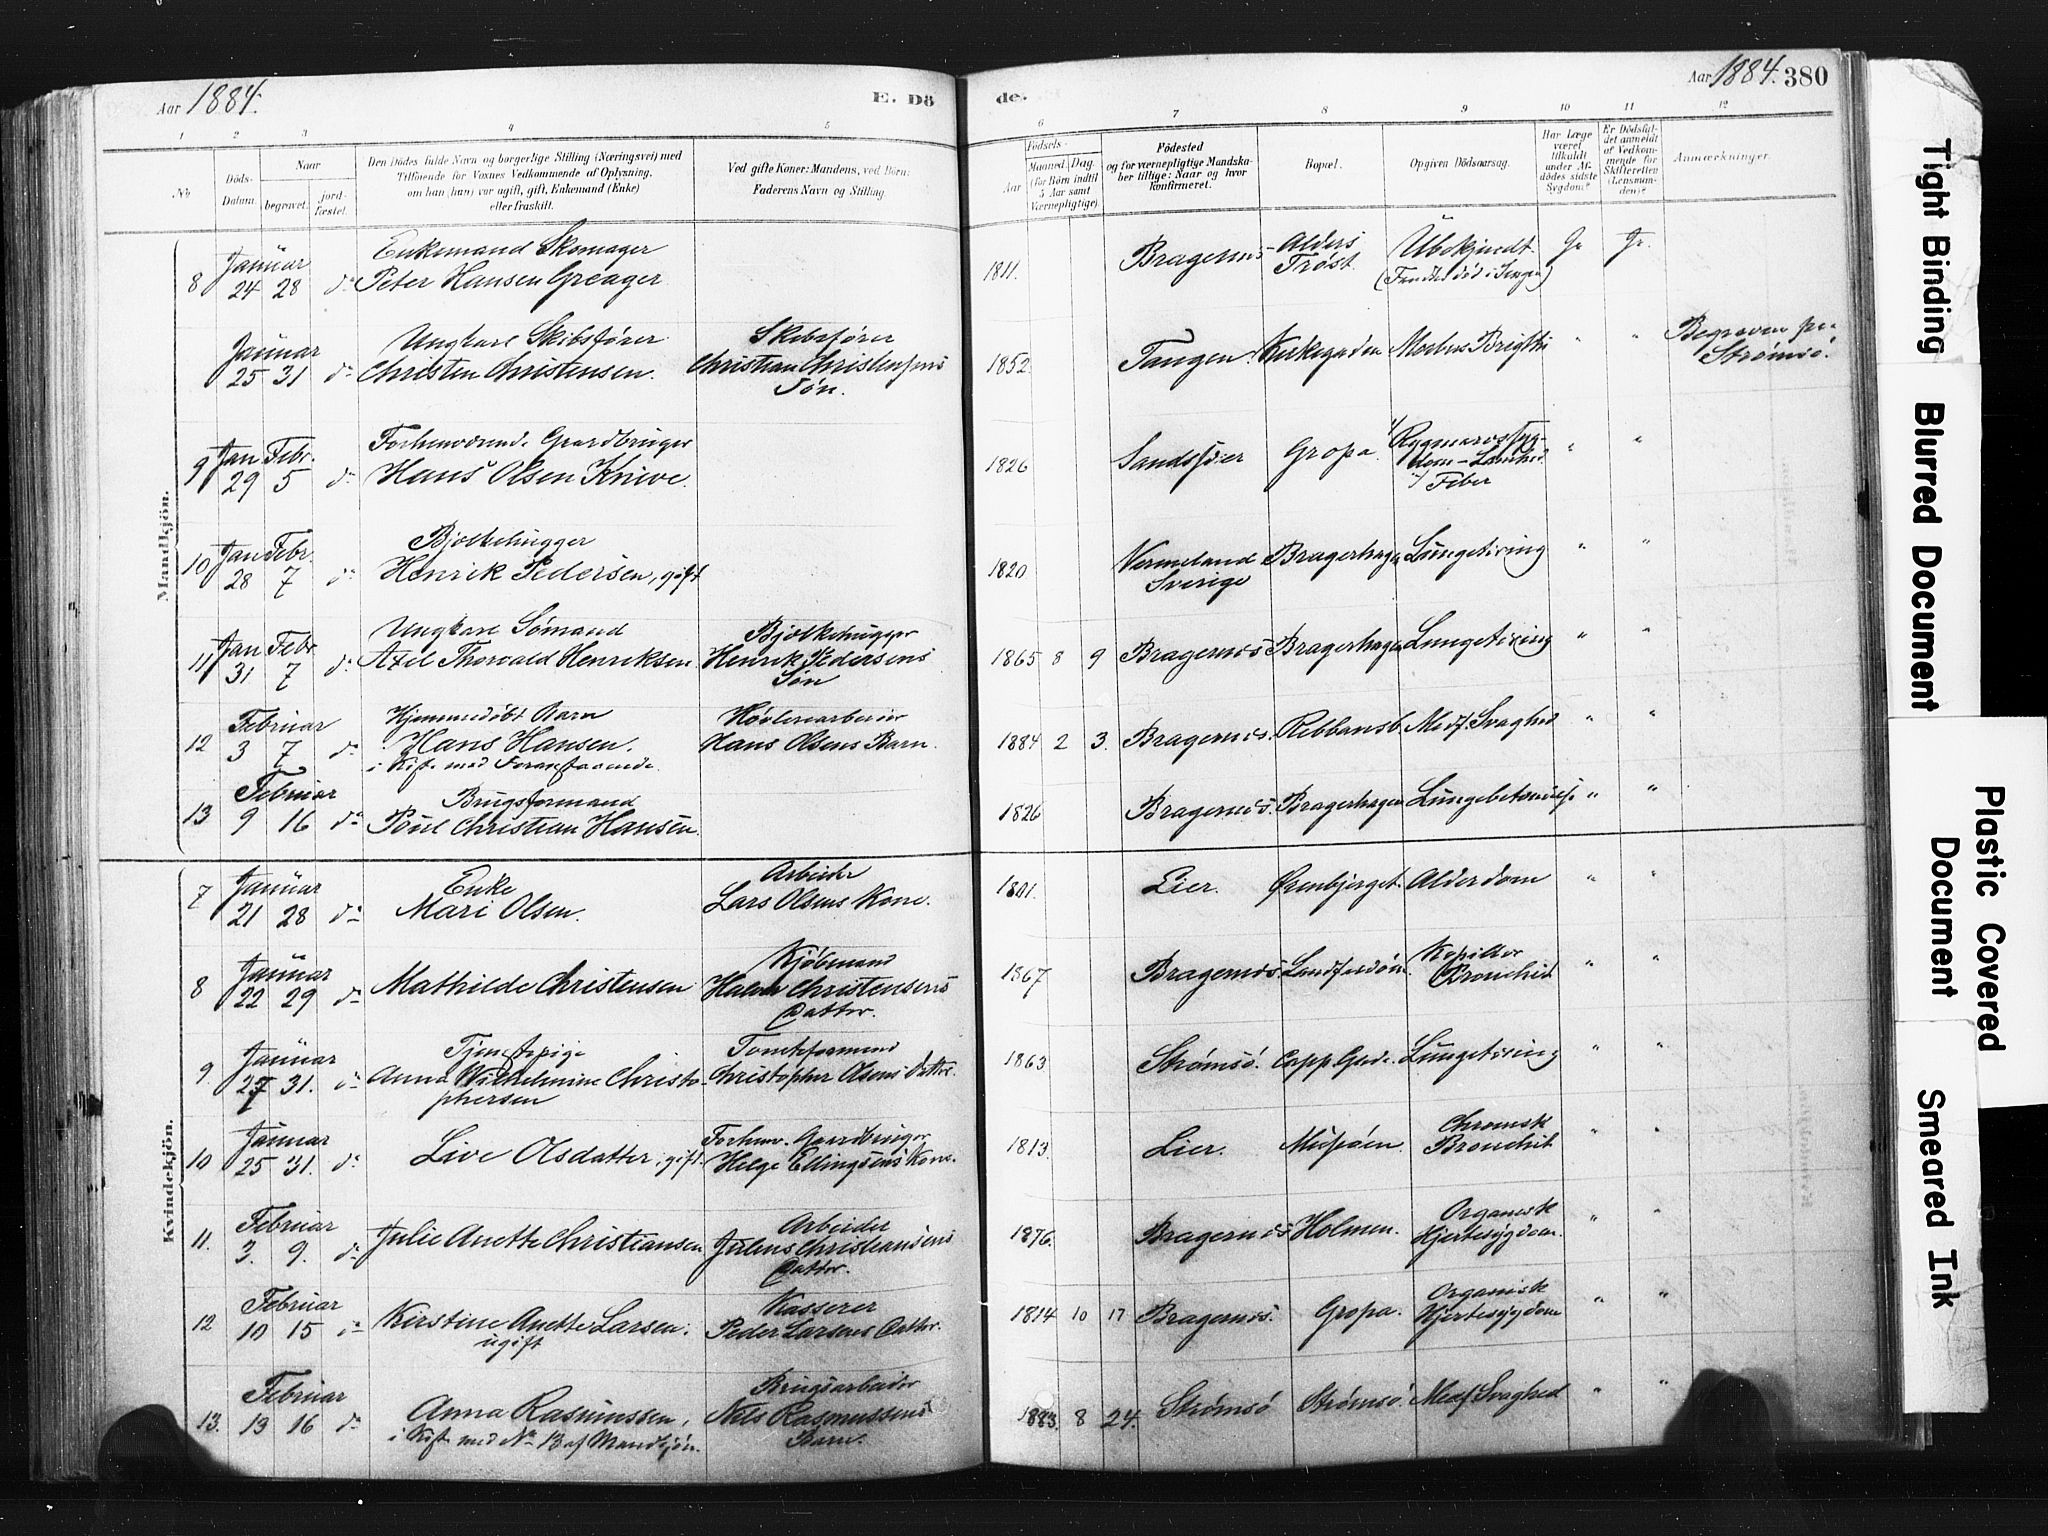 Aar 1884.
E. Dö
de.
Aar 1884. 380
1 2 3 4 5 6 7 8 9 10 11 12
No
Döds-Datum.
Naar
begravet.
jord-fæstet.
Den Dödes fulde Navn og borgerlige Stilling (Næringsvei) med
Tilföiende for Voxnes Vedkommende af Oplysning,
om han (hun) var ugift, gift, Enkemand (Enke)
eller fraskilt.
Ved gifte Koner: Mandens, ved Börn:
Faderens Navn og Stilling.
Födsels-
Aar
Maaned. Dag.
(for Börn indtil
5 Aar samt
Værnepligtige).
Födested
og for værnepligtige Mandska-
ber tillige: Naar og hvor
konfirmeret.
Bopæl.
Opgiven Dödsaarsag.
Har Læge
været
tilkaldt
under Af-
dödes sidste
Sygdom?
Er Dödsfal-
det anmeldt
af Vedkom-
mende for
Skifteretten
(Lensman-
den)?
Anmærkninger.
Mandkjön.
8 Januar 24 28 do Enkemand Skomager
Peter Hansen Greager 1811. Bragernæs Alders Trøst. Ubekjendt. (Fundet død i Sengen) Ja Ja.
Januar 25 31 do Ungkarl Skibsfører
Christen Christensen. Skibsfører
Christian Christensens
Søn. 1852. Tangen. Kirkegaden Morbus Brigthi " " Begraven paa
Strømsø.
9 Jan 29 Febr. 5 do Forhenværende Gaardbruger
Hans Olsen Knive. 1826 Sandsvær Gropa. Rygmarvssyg-
dom - Lamhed
Feber " "
10 Jan 28 Febr. 7 do Bjelkehugger
Henrik Pedersen, gift 1820 Vermeland
Sverige Bragerhagen Lungetæring " "
11 Jan 31 Febr. 7 do Ungkarl Sømand
Axel Thorvald Henriksen Bjelkehugger
Henrik Pedersens
Søn 1865 8 9 Bragernæs Bragerhagen Lungetæring " "
12 Februar 3 7 do Hjemmedøbt Barn
Hans Hansen.
i Kiste med Foranstaaende. Høvleriarbeider
Hans Olsens Barn. 1884 2 3. Bragernæs. Rebbansb. Medf. Svaghed " "
13 Februar 9 16 do Brugsformand
Poul Christian Hansen. 1826 Bragernæs. Bragerhagen Lungebetændelse " "
Kvindekjön.
7 Januar 21 28 do Enke
Mari Olsen. Arbeider
Lars Olsens Kone. 1801. Lier. Ørenbjerget. Alderdom " "
8 Januar 22 29 do Mathilde Christensen Kjøbmand
Halvor Christensens
Datter. 1867 Bragernæs. Landfaldøen. Kapillær
Bronchit " "
9. Januar 27 31. do Tjenstepige
Anna Wilhelmine Christo-
phersen Tomteformand
Christopher Olsens Datter. 1863 Strømsø. Capp. Gade. Lungetæring " "
10 Januar 25 31. do Live Olsdatter, gift. Forhenv. Gaardbruger
Helge Ellingsens Kone. 1813. Lier. Chronisk
Bronchit " "
11. Februar 3. 9. do Julie Anette Christiansen Arbeider
Julius Christiansens
Datter. 1876. Bragernæs Holmen. Organisk
Hjertesygdom. " "
12 Februar 10 15 do Kirstine Anette Larsen.
ugift Kasserer
Peder Larsens Datter. 1814 10 17 Bragernæs. Gropa. Organisk
Hjertesygdom " "
13. Februar 13 16 do Anna Rasmussen,
i Kiste med No 13 af Mandkjøn. Brugsarbeider
Nils Rasmussens
Barn. 1883. 8 24. Strømsø Strømsø. Medf. Svaghed " "
Tight Binding
Blurred Document
Plastic Covered
Document
Smeared Ink